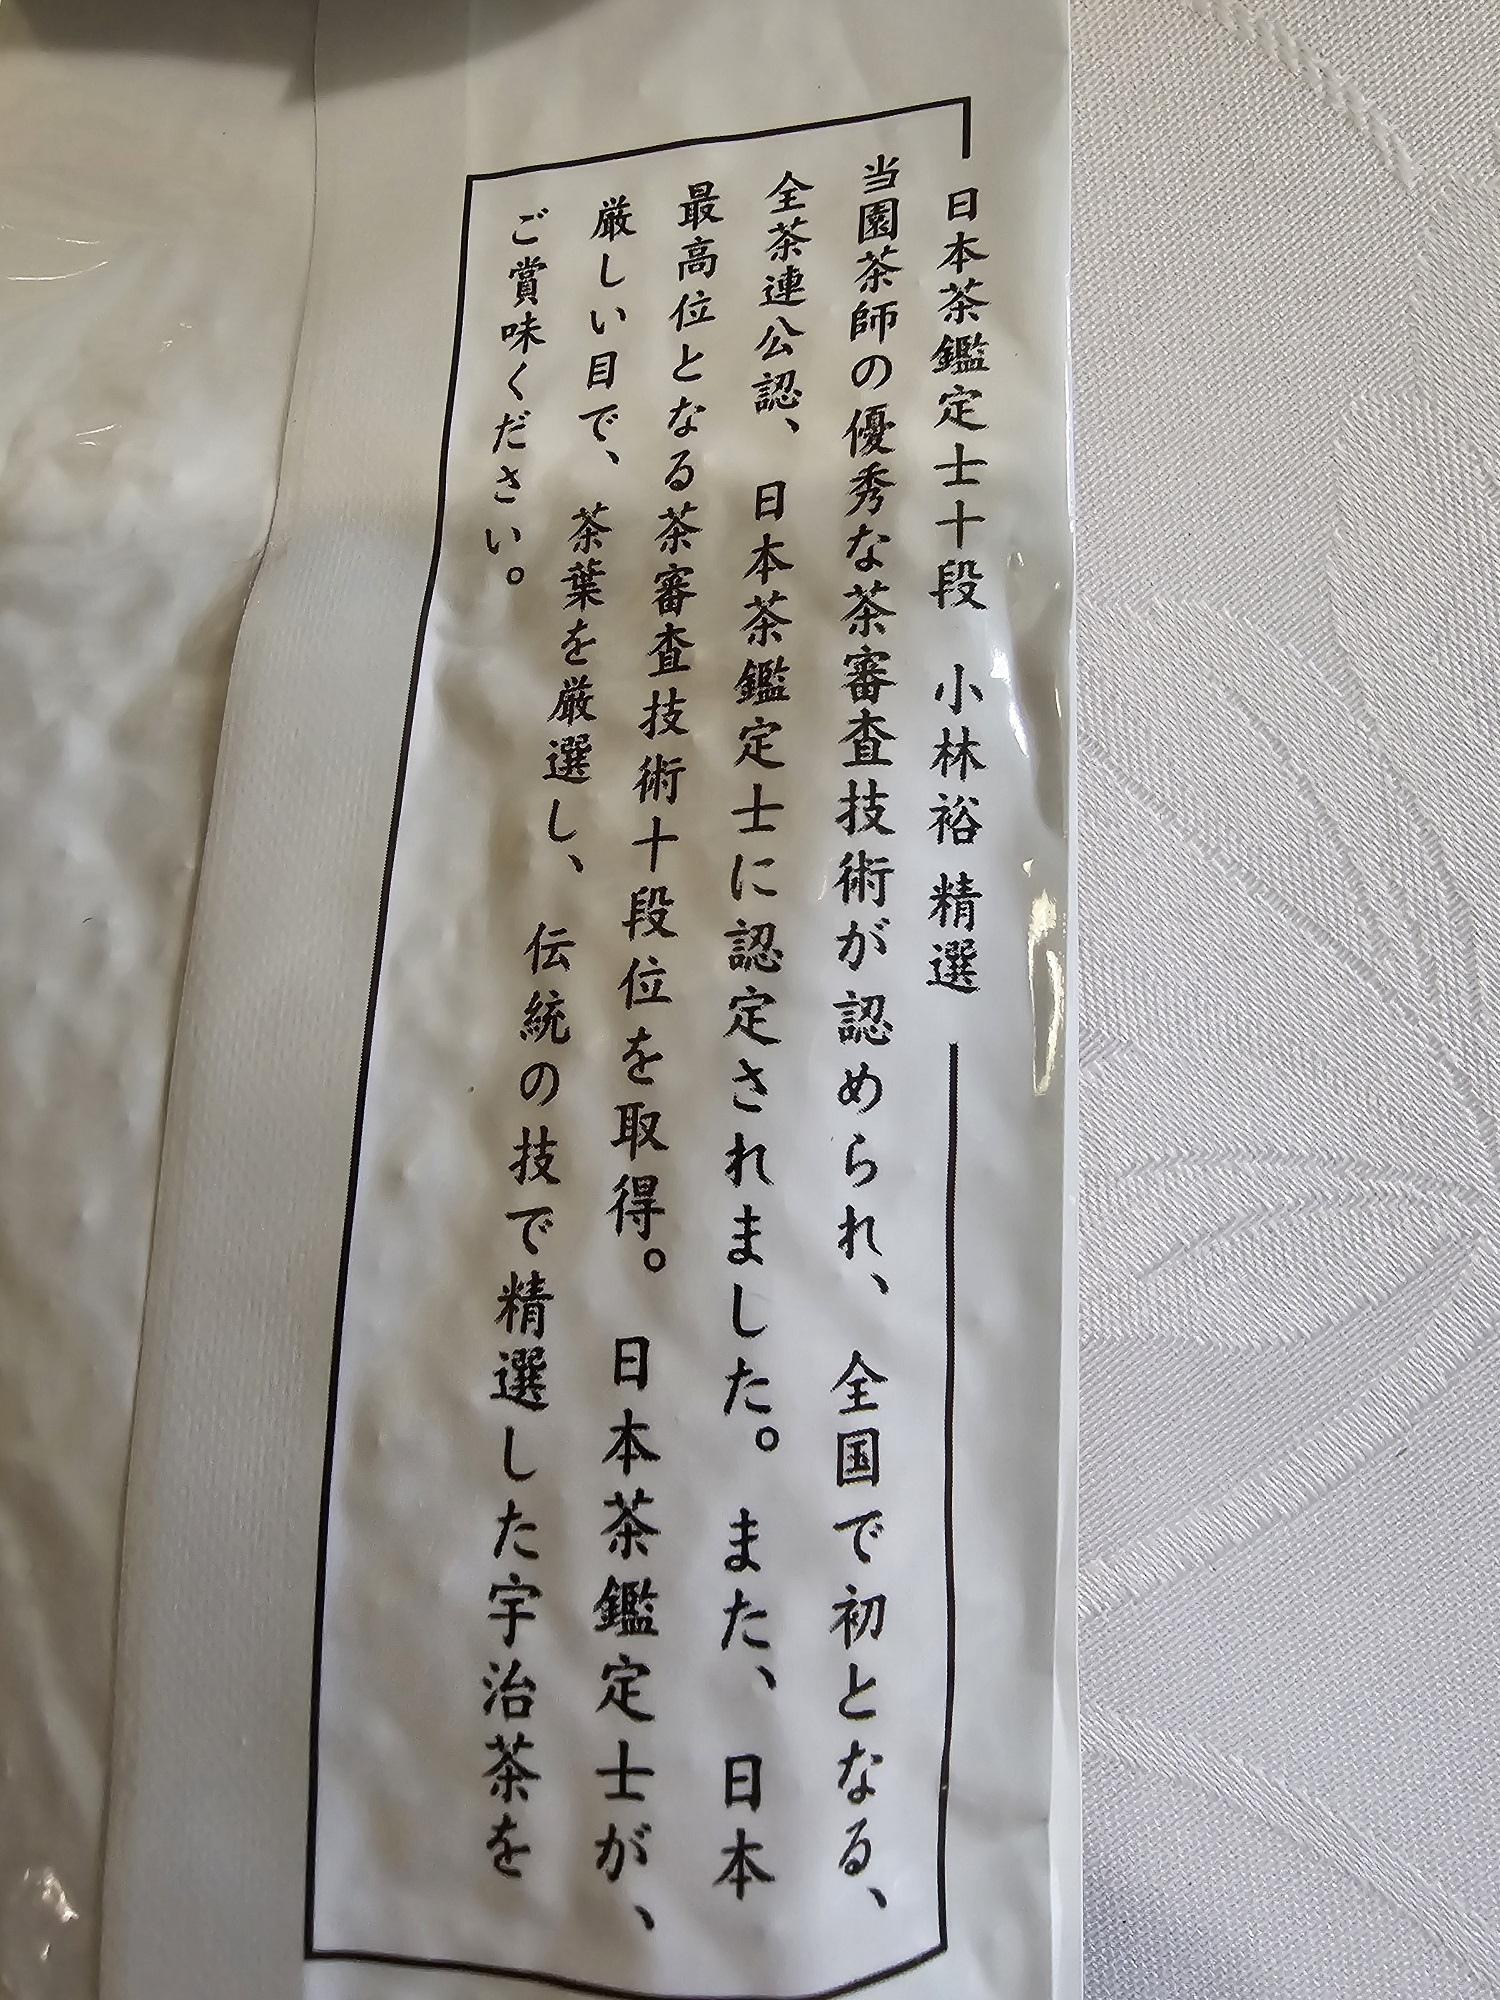 日本茶鑑定士十段 小林裕 精選
当園茶師の優秀な茶審査技術が認められ、全国で初となる、
全茶連公認、日本茶鑑定士に認定されました。また、日本
最高位となる茶審査技術十段位を取得。日本茶鑑定士が、
厳しい目で、茶葉を厳選し、伝統の技で精選した宇治茶を
ご賞味ください。